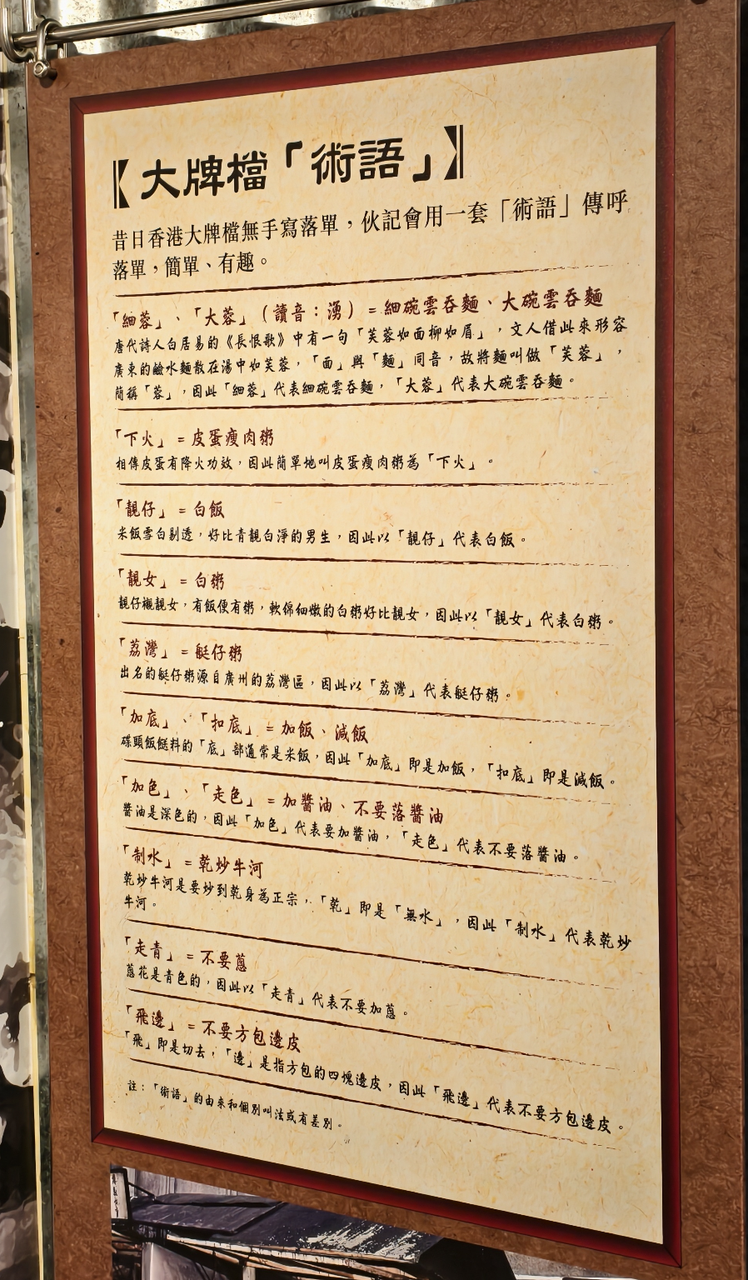 【大牌檔「術語」】
昔日香港大牌檔無手寫落單，伙記會用一套「術語」傳呼
落單，簡單、有趣。
「細蓉」、「大蓉」（讀音：湧）= 細碗雲吞麵、大碗雲吞麵
唐代詩人白居易的《長恨歌》中有一句「芙蓉如面柳如眉」，文人借此來形容
廣東的鹼水麵散在湯中如芙蓉，「面」與「麵」同音，故將麵叫做「芙蓉」，
簡稱「蓉」，因此「細蓉」代表細碗雲吞麵，「大蓉」代表大碗雲吞麵。
「下火」= 皮蛋瘦肉粥
相傳皮蛋有降火功效，因此簡單地叫皮蛋瘦肉粥為「下火」。
「靚仔」= 白飯
米飯雪白剔透，好比青靚白淨的男生，因此以「靚仔」代表白飯。
「靚女」= 白粥
靚仔襯靚女，有飯便有粥，軟綿細嫩的白粥好比靚女，因此以「靚女」代表白粥。
「荔灣」= 艇仔粥
出名的艇仔粥源自廣州的荔灣區，因此以「荔灣」代表艇仔粥。
「加底」、「扣底」= 加飯、減飯
碟頭飯餸料的「底」部通常是米飯，因此「加底」即是加飯，「扣底」即是減飯。
「加色」、「走色」= 加醬油、不要落醬油
醬油是深色的，因此「加色」代表要加醬油，「走色」代表不要落醬油。
「制水」= 乾炒牛河
乾炒牛河是要炒到乾身為正宗，「乾」即是「無水」，因此「制水」代表乾炒
牛河。
「走青」= 不要蔥
蔥花是青色的，因此以「走青」代表不要加蔥。
「飛邊」= 不要方包邊皮
「飛」即是切去，「邊」是指方包的四塊邊皮，因此「飛邊」代表不要方包邊皮。
註：「術語」的由來和個別叫法或有差別。